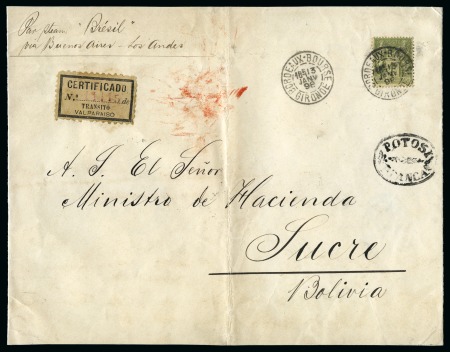 Par steam "Brésil"
via Buenos Aires - Los Andes
BORDEAUX-BOURSE
13
JANV
98
GIRONDE
BORDEAUX-BOURSE
GIRONDE
CERTIFICADO
N.º
TRANSITO
VALPARAISO
POTOSI
FRANCA
A. S. El Señor
Ministro de Hacienda
Sucre
Bolivia